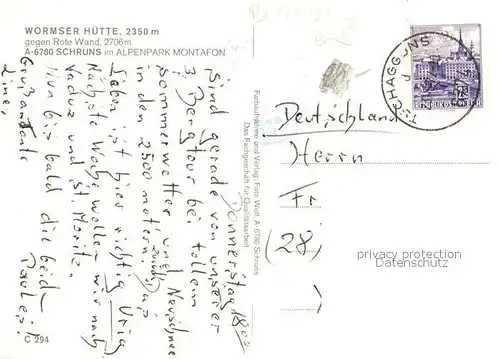 WORMSER HÜTTE, 2350 m
gegen Rote Wand, 2706 m
A-6780 SCHRUNS im ALPENPARK MONTAFON
Donnerstag 18⁰⁰
sind gerade von unserer
3. Bergtour bei tollem
Sommerwetter und Neuschnee
in den 2500 metern zurück.
Leben ist hier richtig Urig
Nächste Woche wollen wir nach
Vaduz und St. Moritz.
Nun bis bald die beiden
Gruß an Tante
Line.
C 294
Farbaufnahme und Verlag: Foto Wolf, A-6780 Schruns
Das Fachgeschäft für Qualitätsarbeit
TSCHAGGUNS
REPUBLIK ÖSTERREICH
Deutschland
Herrn
Fr
(28,
)
privacy protection
Datenschutz